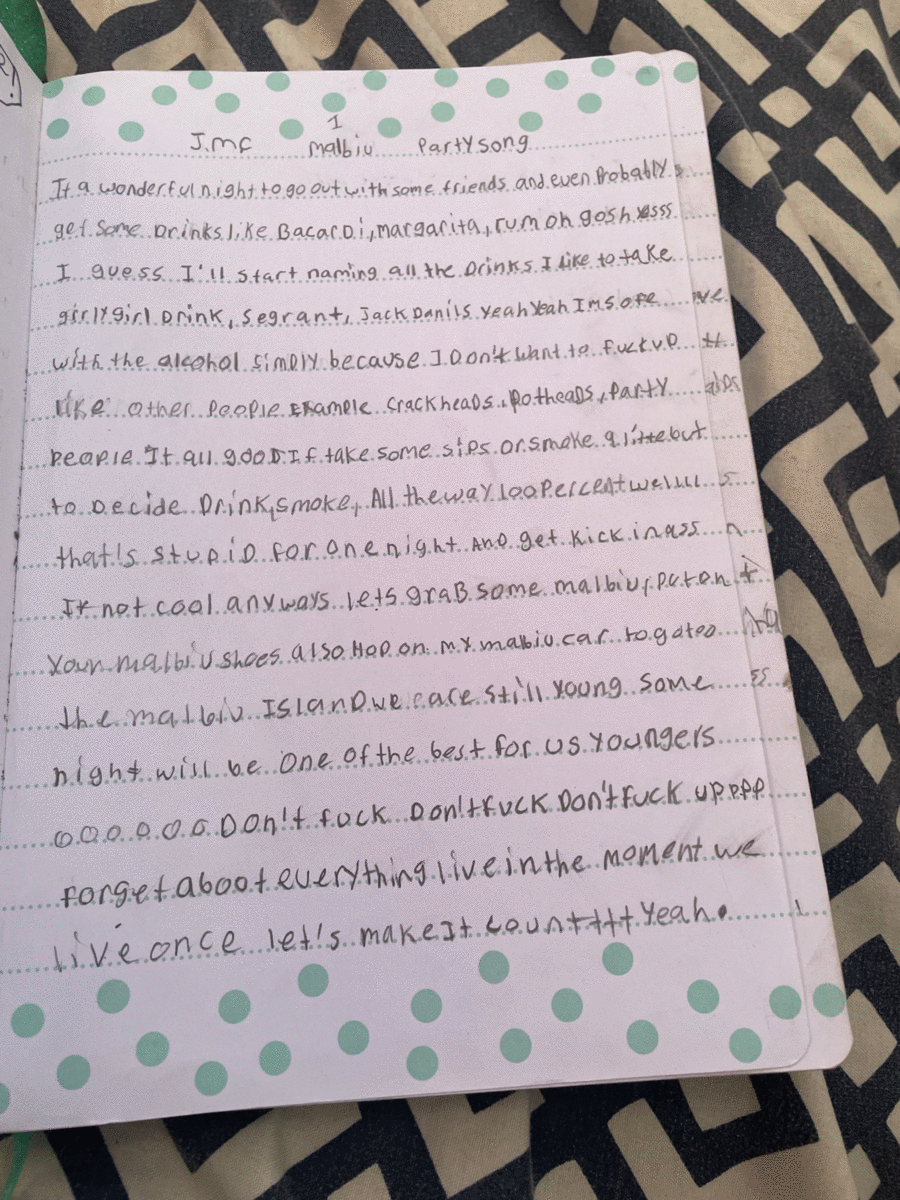 1
J.mc malbiu Partysong
It a wonderful night to go out with some friends and even Probably
get some Drinks like Bacardi, margarita, rum oh gosh yesss
I guess I'll start naming all the Drinks I like to take
girlygirl Drink, segrant, Jack Danils yeah Yeah Im sope
with the alcohol simply because I Don't want to fuckup
like other people Example crackheads, potheads, Party
people. It all good If take some sips or smoke a litte but
to Decide Drink, smoke, All the way 100 Percent wellll
that's stupid for one night And get kick in ass
It not cool anyways lets graB some malbiu, put on
your malbiu shoes also Hop on my malbiu car to gateo
the malbiu ISland we are still young some
night will be one of the best for us youngers
o.o.o.o.o.o Don't fuck Don't fuck Don't fuck upppp
forget aboot everything live in the moment we
live once let's make It counttttt Yeah.